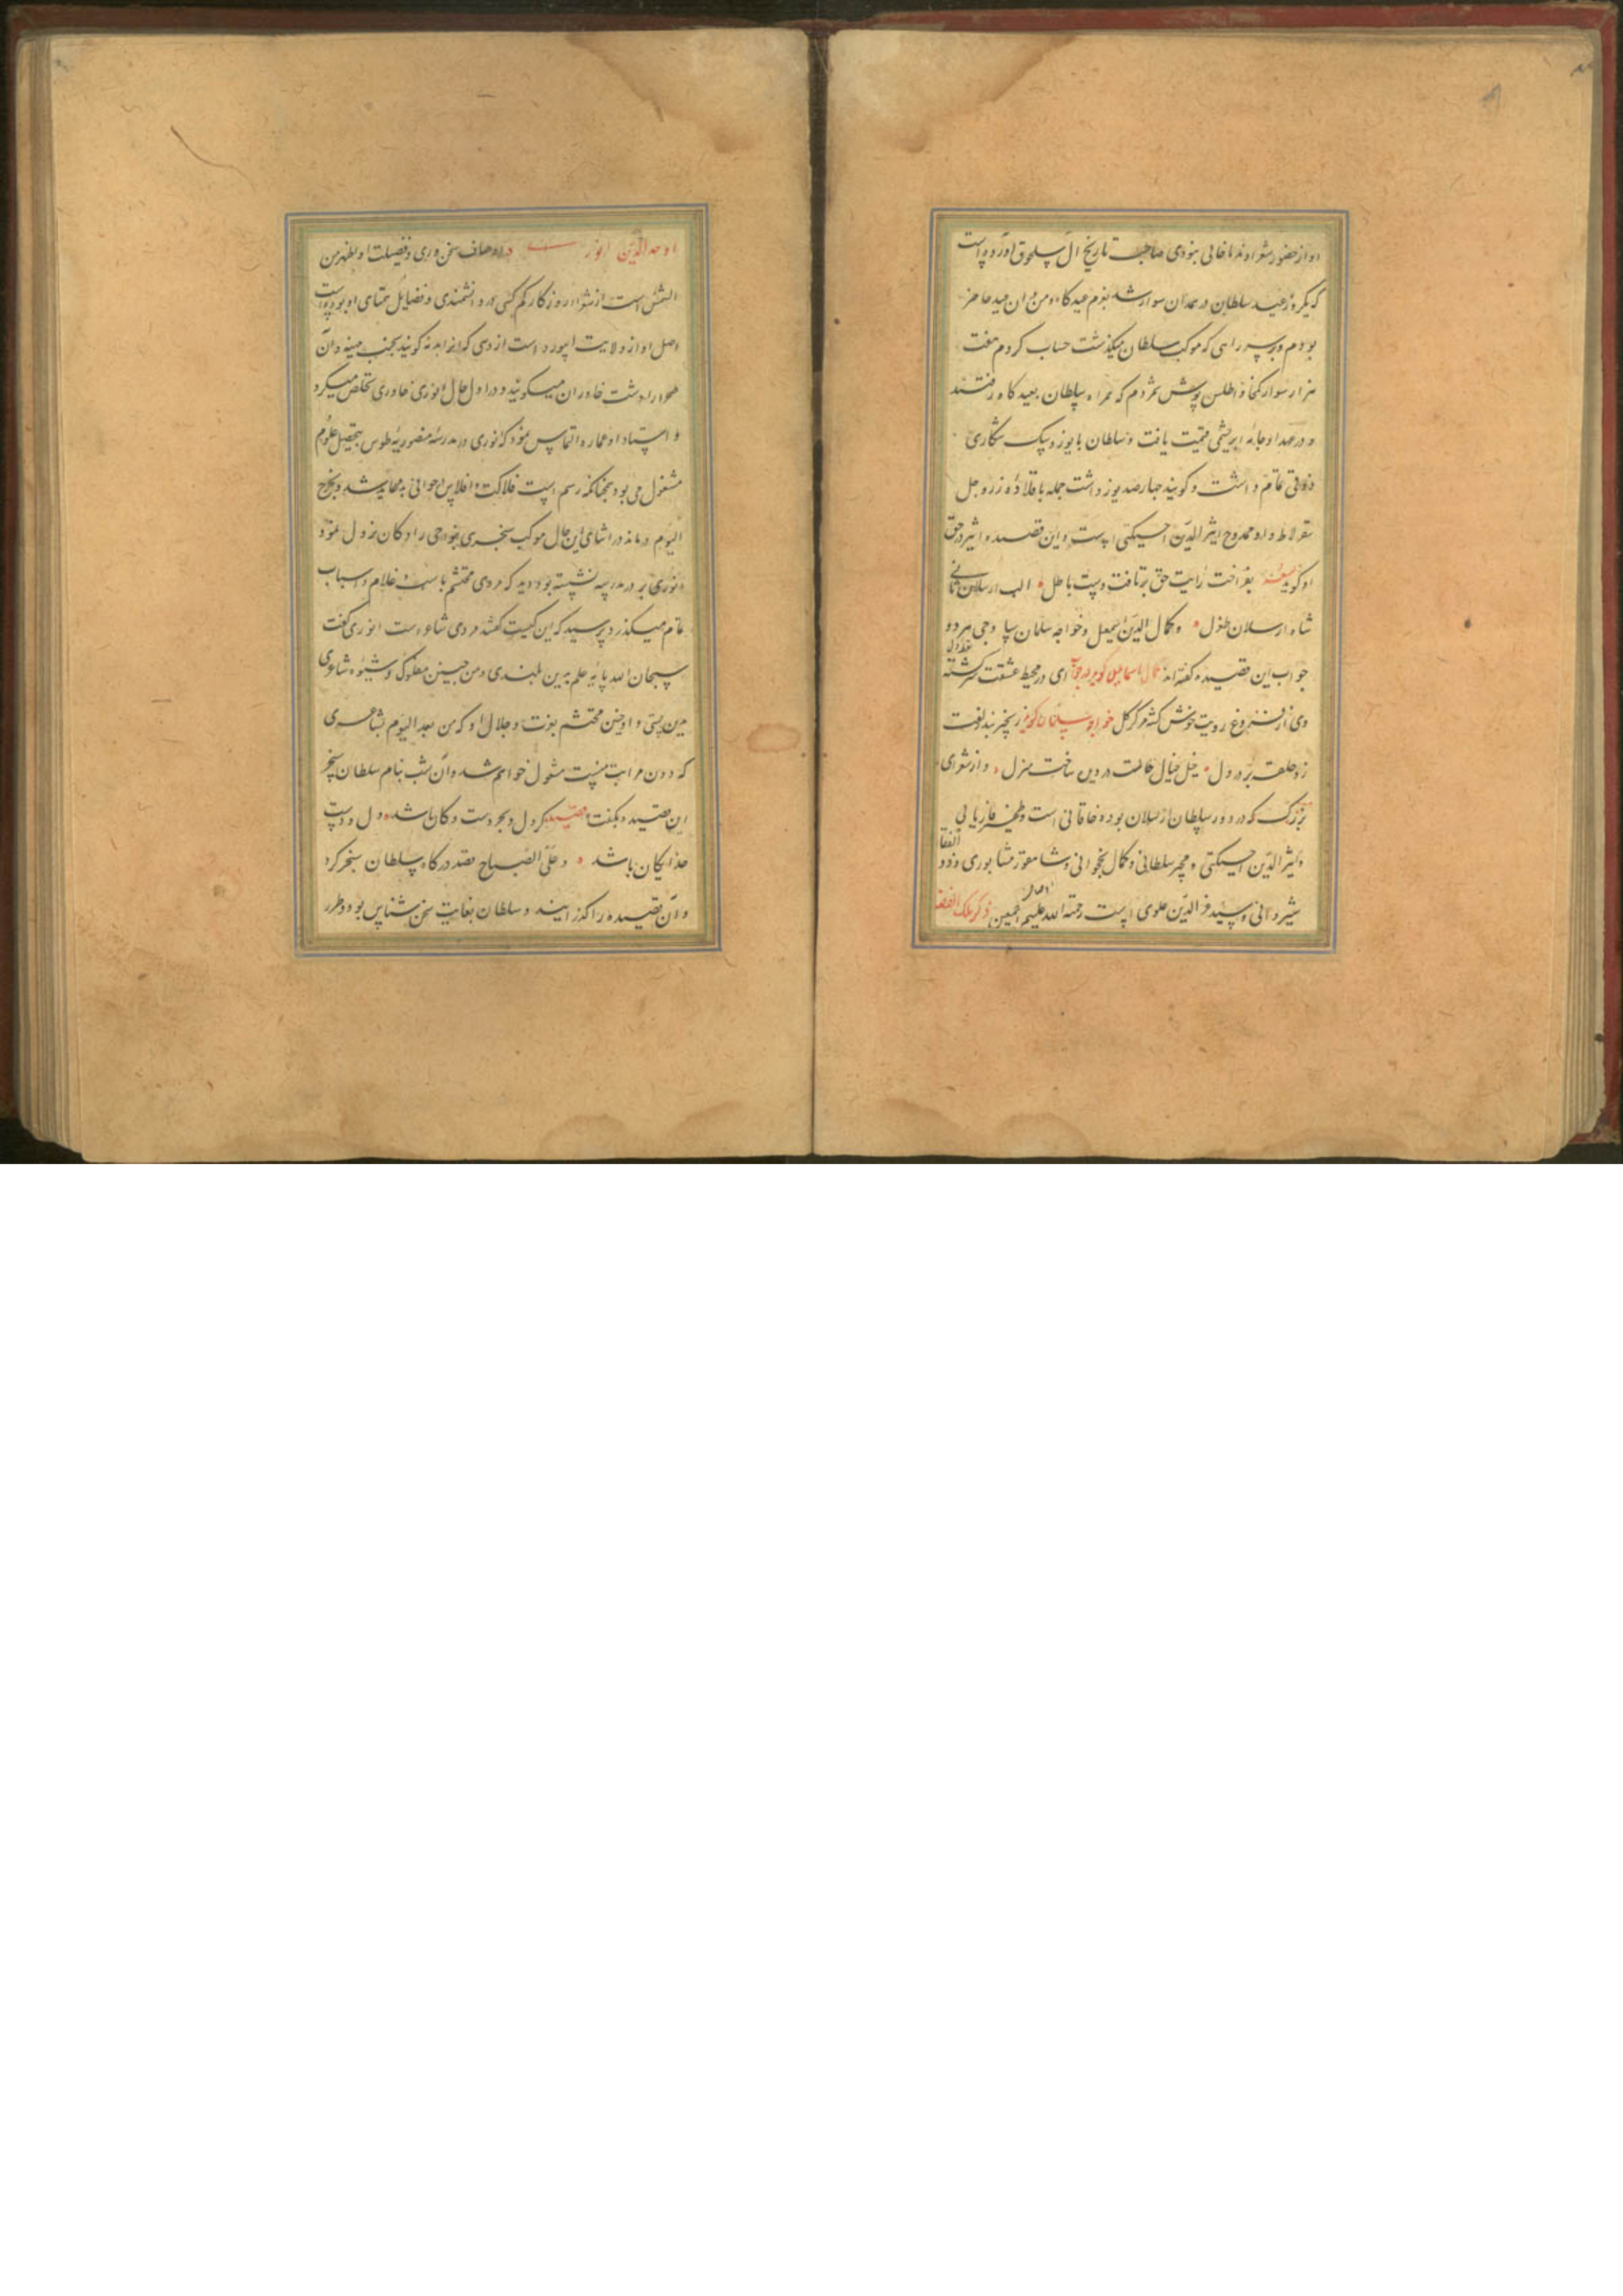 او از حضور شعرا و ندما خالی نبودی صاحب تاریخ آل سلجوق آورده است
که یکروز عید سلطان در همدان سوار شد بعزم عیدگاه و من در ان عید حاضر
بودم و بر سر راهی که موکب سلطان میگذشت حساب کردم هفت
هزار سوار کمخا و اطلس پوش شمردم که همراه سلطان بعید کاه رفتند
و در عهد او جامه ابریشمی قیمت یافت و سلطان با یوز و سک شکاری
ذوقی تمام داشت و کویند چهارصد یوز داشت جمله با قلاده زر و جل
سقرلاط و او ممدوح اثیر الدین اخسیکتی است و این قصیده اثیر در حق
او کوید بفراخت رایت حق برتافت دست باطل الب ارسلان ثانی
شاه ارسلان طغرل و کمال الدین اسمعیل و خواجه سلمان ساوجی هر دو
جواب این قصیده گفته اند کمال اسماعیل کوید در جواب ای در محیط عشقت سرکشته
وی از فروغ رویت خوش کشته مرکز کل خواجه سلمان کوید زنجیر بند زلفت
زد حلقه بر در دل خیل خیال خالت در دیده ساخت منزل و از شعرای
بزرک که در دور سلطان ارسلان بوده خاقانی است و ظهیر فاریابی
و اثیر الدین اخسیکتی و مجیر بیلقانی و کمال نخجوانی و شاهفور نیشابوری و ذو الفقار
شیروانی و سید عز الدین علوی است رحمة الله علیهم اجمعین ذکر ملک الفضلا
اوحد الدین انوری در اوصاف سخن وری و فضیلت او اظهر من
الشمس است از شعرا روزکار کم کسی در دانشمندی و فضایل همتای او بوده است
اصل او از ولایت ابیورد است از دهی که انرا بدنه کویند بجنب مهنه و آن
صحرا را دشت خاوران میکویند و در اول حال انوری خاوری تخلص میکرد
و استاد او عماره التماس نمود که انوری در مدرسه منصوریه طوس بتحصیل علوم
مشغول می بود چنانکه رسم است فلاکت و افلاس بدو عاید شد و بخرج
الیوم درماند در اثنای این حال موکب سنجری بنواحی رادکان نزول نمود
انوری بر در مدرسه نشسته بود دید که مردی محتشم با اسب و غلام و اسباب
تمام میگذرد پرسید که این کیست کفتند مردی شاعر است انوری کفت
سبحان الله پایه علم بدین بلندی و من چنین مفلوک و شیوه شاعری
بدین پستی و او چنین محتشم بعزت و جلال او که من بعد الیوم بشاعری
که دون مراتب منست مشغول خواهم شد و آن شب بنام سلطان سنجر
این قصیده بکفت قصیده کر دل و بحر دست و کان باشد دل و دست
خدایکان باشد و علی الصباح قصد درکاه سلطان سنجر کرد
و آن قصیده را کذرانیند و سلطان بغایت سخن شناس بود و طرز